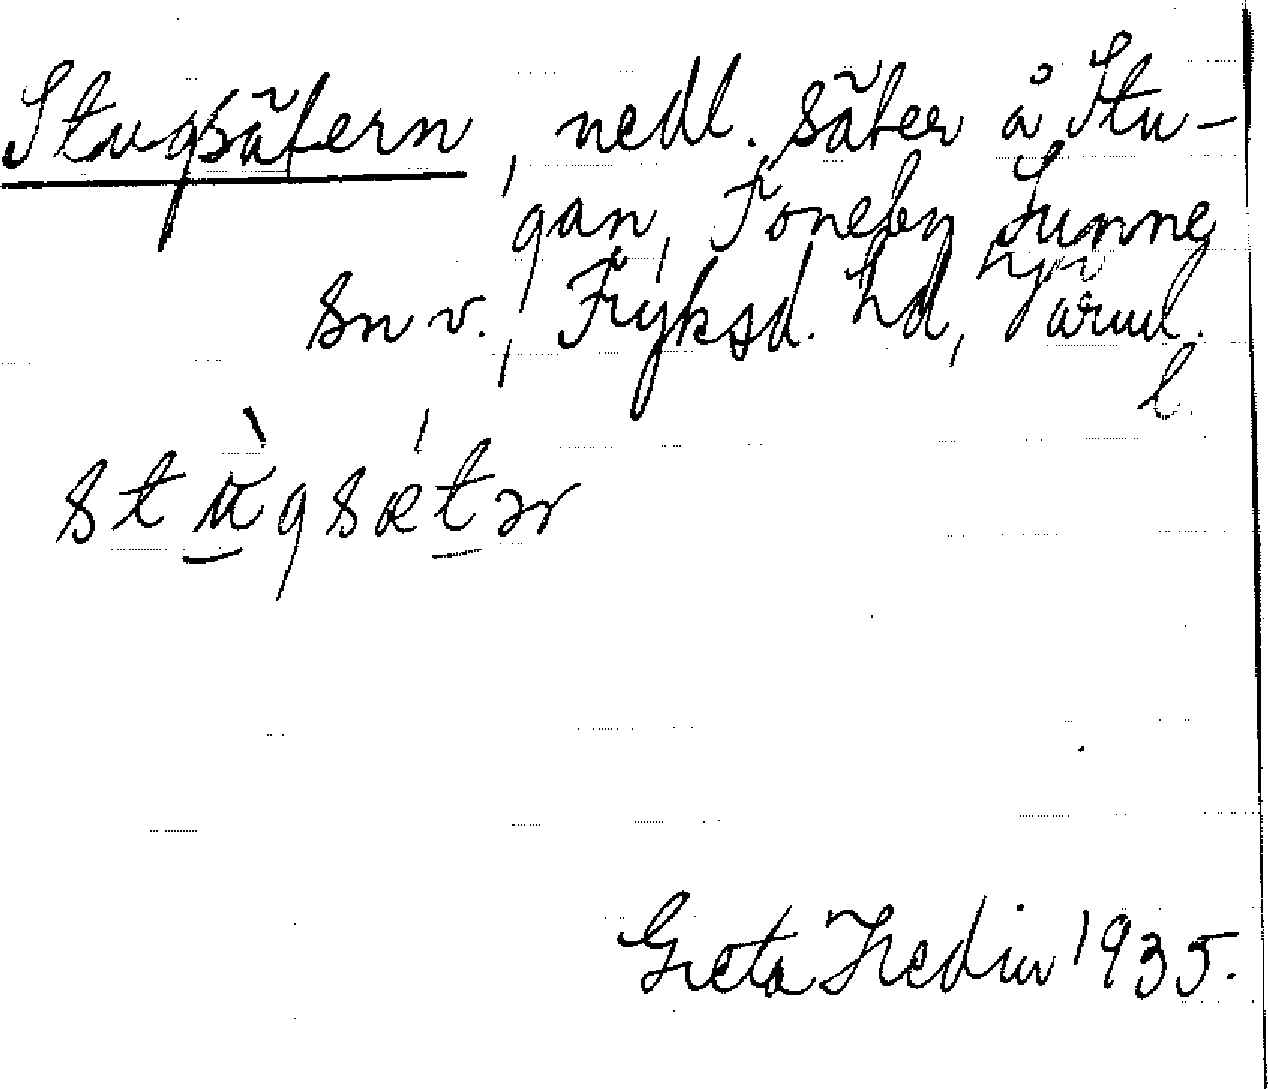 Stugsätern, nedl. säter å Stu-
gan, Toneby, Sunne
sn v., Fryksd. hd, Värml.
l.
stùgsǽtər
Greta Hedin 1935.